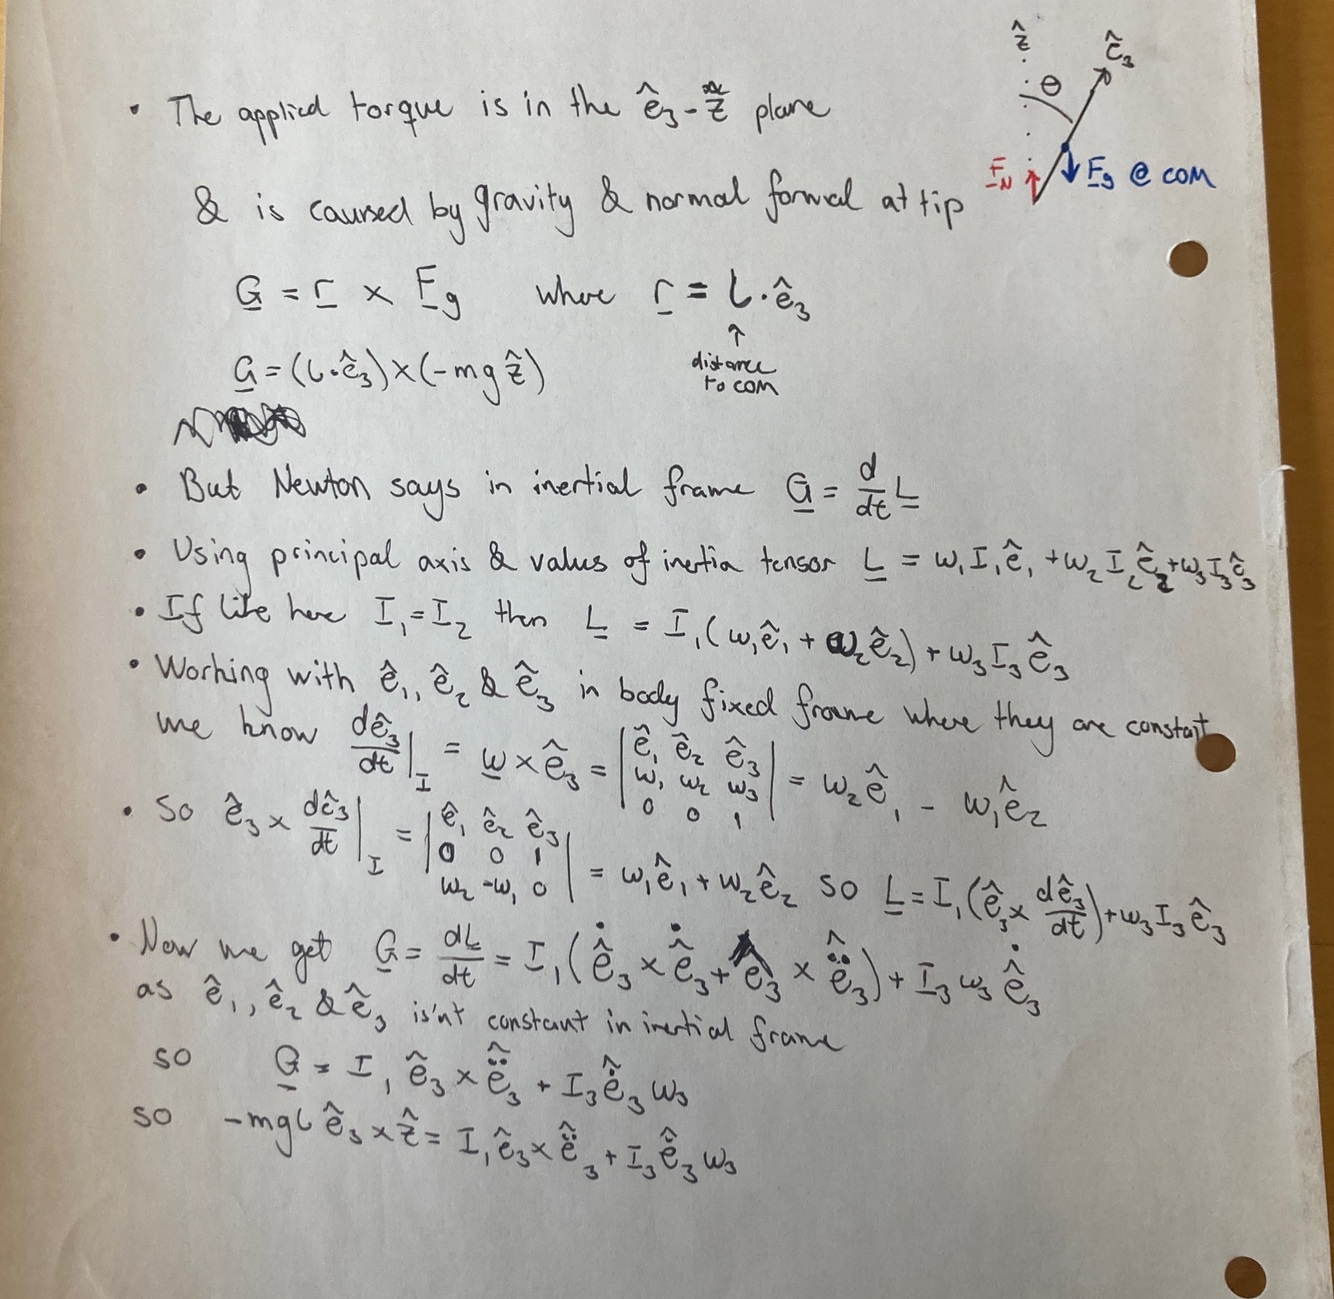 ẑ
ê₃
θ
• The applied torque is in the ê₃-ẑ plane
F_N
F_g @ COM
& is caused by gravity & normal forwal at tip
G = r × F_g where r = l·ê₃
↑
distance
to COM
G = (l·ê₃)×(-mgẑ)
• But Newton says in inertial frame G = d/dt L
• Using principal axis & values of inertia tensor L = ω₁I₁ê₁ + ω₂I₂ê₂ + ω₃I₃ê₃
• If like here I₁=I₂ then L = I₁(ω₁ê₁ + ω₂ê₂) + ω₃I₃ê₃
• Working with ê₁, ê₂ & ê₃ in body fixed frame where they are constant
we know dê₃/dt|_I = ω × ê₃ = |ê₁ ê₂ ê₃; ω₁ ω₂ ω₃; 0 0 1| = ω₂ê₁ - ω₁ê₂
• So ê₃ × dê₃/dt|_I = |ê₁ ê₂ ê₃; 0 0 1; ω₂ -ω₁ 0| = ω₁ê₁ + ω₂ê₂ so L = I₁(ê₃ × dê₃/dt) + ω₃I₃ê₃
• Now we get G = dL/dt = I₁(ê̇₃ × ê̇₃ + ê₃ × ê̈₃) + I₃ω₃ê̇₃
as ê₁, ê₂ & ê₃ is'nt constant in inertial frame
so G = I₁ ê₃ × ê̈₃ + I₃ê̇₃ω₃
so -mgl ê₃ × ẑ = I₁ê₃ × ê̈₃ + I₃ê̇₃ω₃